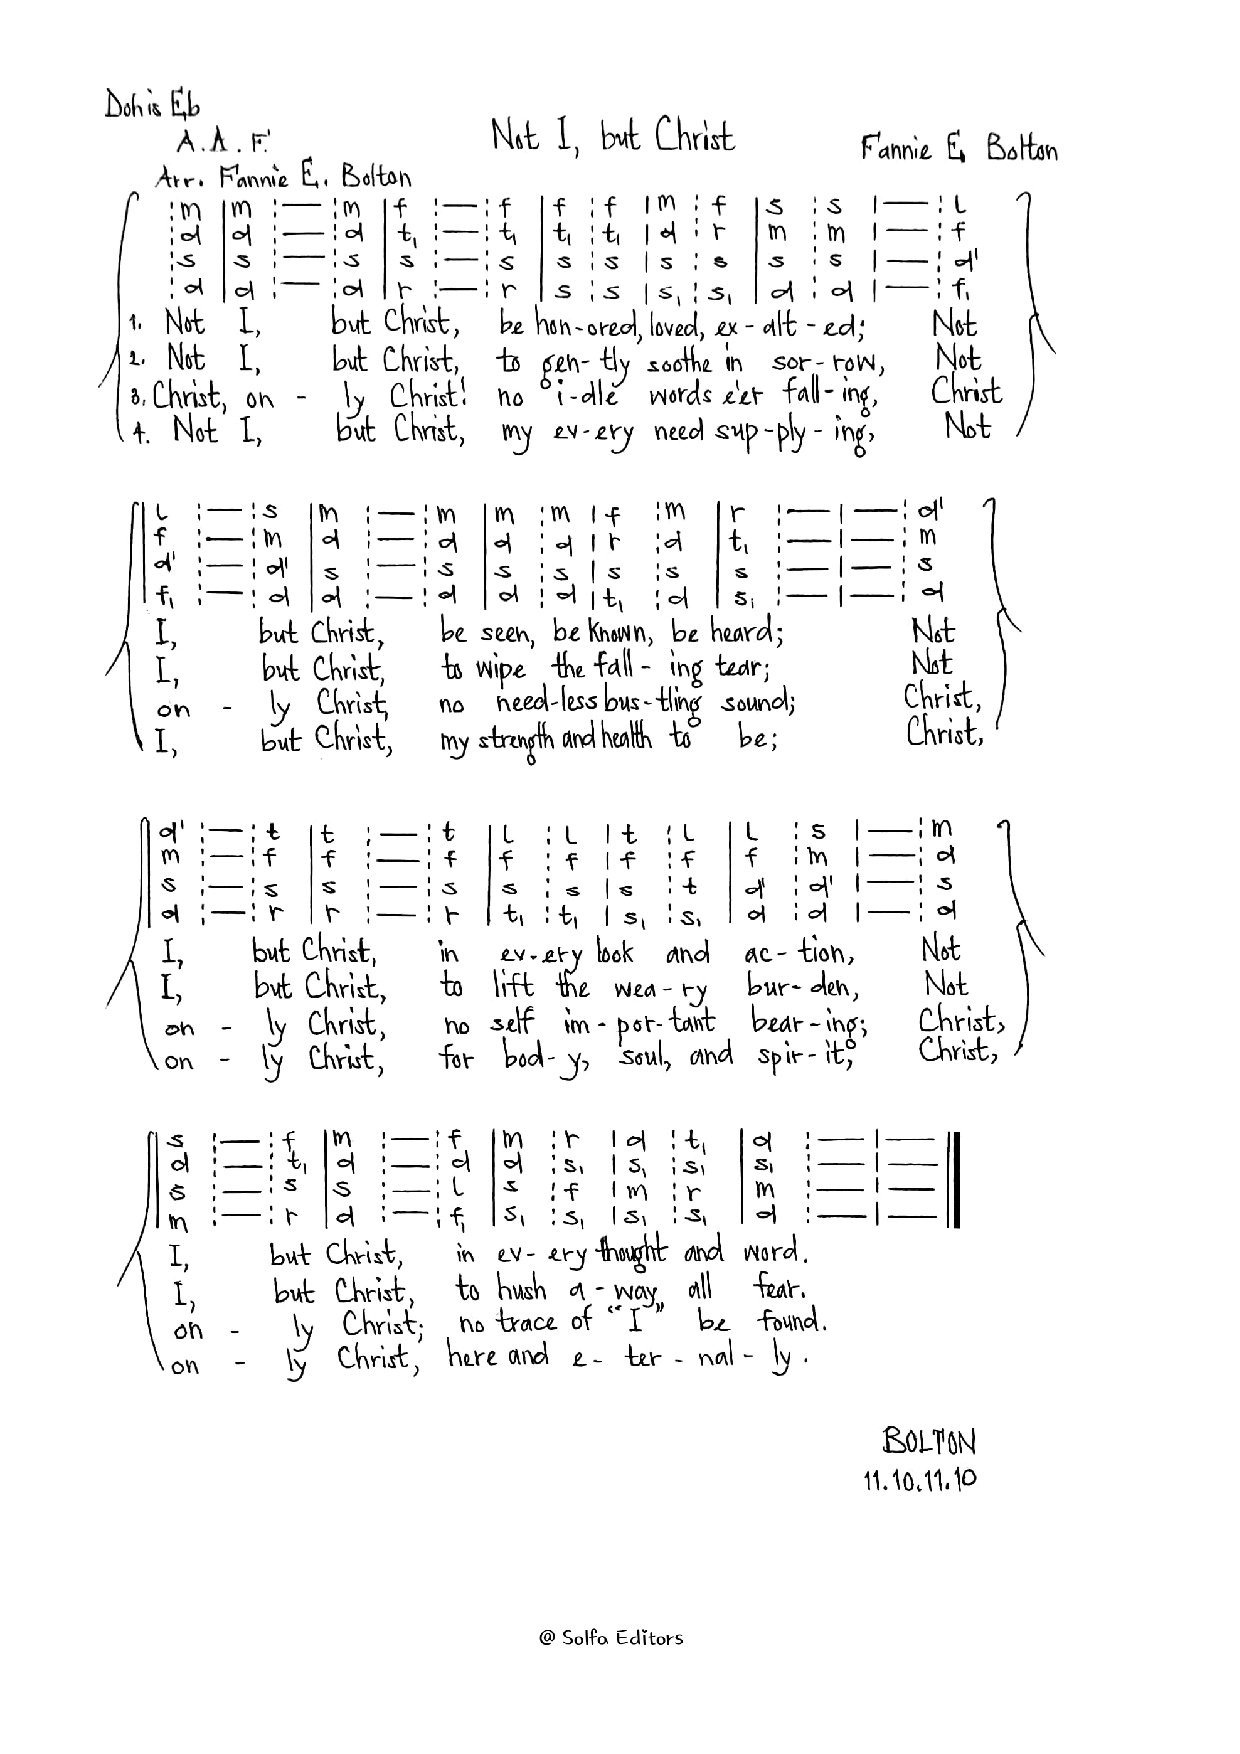 Doh is Eb
A. A. F.
Not I, but Christ
Fannie E. Bolton
Arr. Fannie E. Bolton
:m |m :— :m |f :— :f |f :f |m :f |s :s |— :l
:d |d :— :d |t₁ :— :t₁ |t₁ :t₁ |d :r |m :m |— :f
:s |s :— :s |s :— :s |s :s |s :s |s :s |— :d'
:d |d :— :d |r :— :r |s :s |s₁ :s₁ |d :d |— :f₁
1. Not I, but Christ, be hon-ored, loved, ex-alt-ed; Not
2. Not I, but Christ, to gen-tly soothe in sor-row, Not
3. Christ, on - ly Christ! no i-dle words e'er fall-ing, Christ
4. Not I, but Christ, my ev-ery need sup-ply-ing, Not
|l :— :s |m :— :m |m :m |f :m |r :— |— :d'
|f :— :m |d :— :d |d :d |r :d |t₁ :— |— :m
|d' :— :d' |s :— :s |s :s |s :s |s :— |— :s
|f₁ :— :d |d :— :d |d :d |t₁ :d |s₁ :— |— :d
I, but Christ, be seen, be known, be heard; Not
I, but Christ, to wipe the fall - ing tear; Not
on - ly Christ, no need-less bus-tling sound; Christ,
I, but Christ, my strength and health to be; Christ,
|d' :— :t |t :— :t |l :l |t :l |l :s |— :m
|m :— :f |f :— :f |f :f |f :f |f :m |— :d
|s :— :s |s :— :s |s :s |s :t |d' :d' |— :s
|d :— :r |r :— :r |t₁ :t₁ |s₁ :s₁ |d :d |— :d
I, but Christ, in ev-ery look and ac-tion, Not
I, but Christ, to lift the wea-ry bur-den, Not
on - ly Christ, no self im-por-tant bear-ing; Christ,
on - ly Christ, for bod-y, soul, and spir-it, Christ,
|s :— :f |m :— :f |m :r |d :t₁ |d :— |— ||
|d :— :t₁ |d :— :d |d :s₁ |s₁ :s₁ |s₁ :— |— ||
|s :— :s |s :— :l |s :f |m :r |m :— |— ||
|m :— :r |d :— :f₁ |s₁ :s₁ |s₁ :s₁ |d :— |— ||
I, but Christ, in ev-ery thought and word.
I, but Christ, to hush a-way all fear.
on - ly Christ; no trace of "I" be found.
on - ly Christ, here and e-ter-nal-ly.
BOLTON
11.10.11.10
@ Solfa Editors